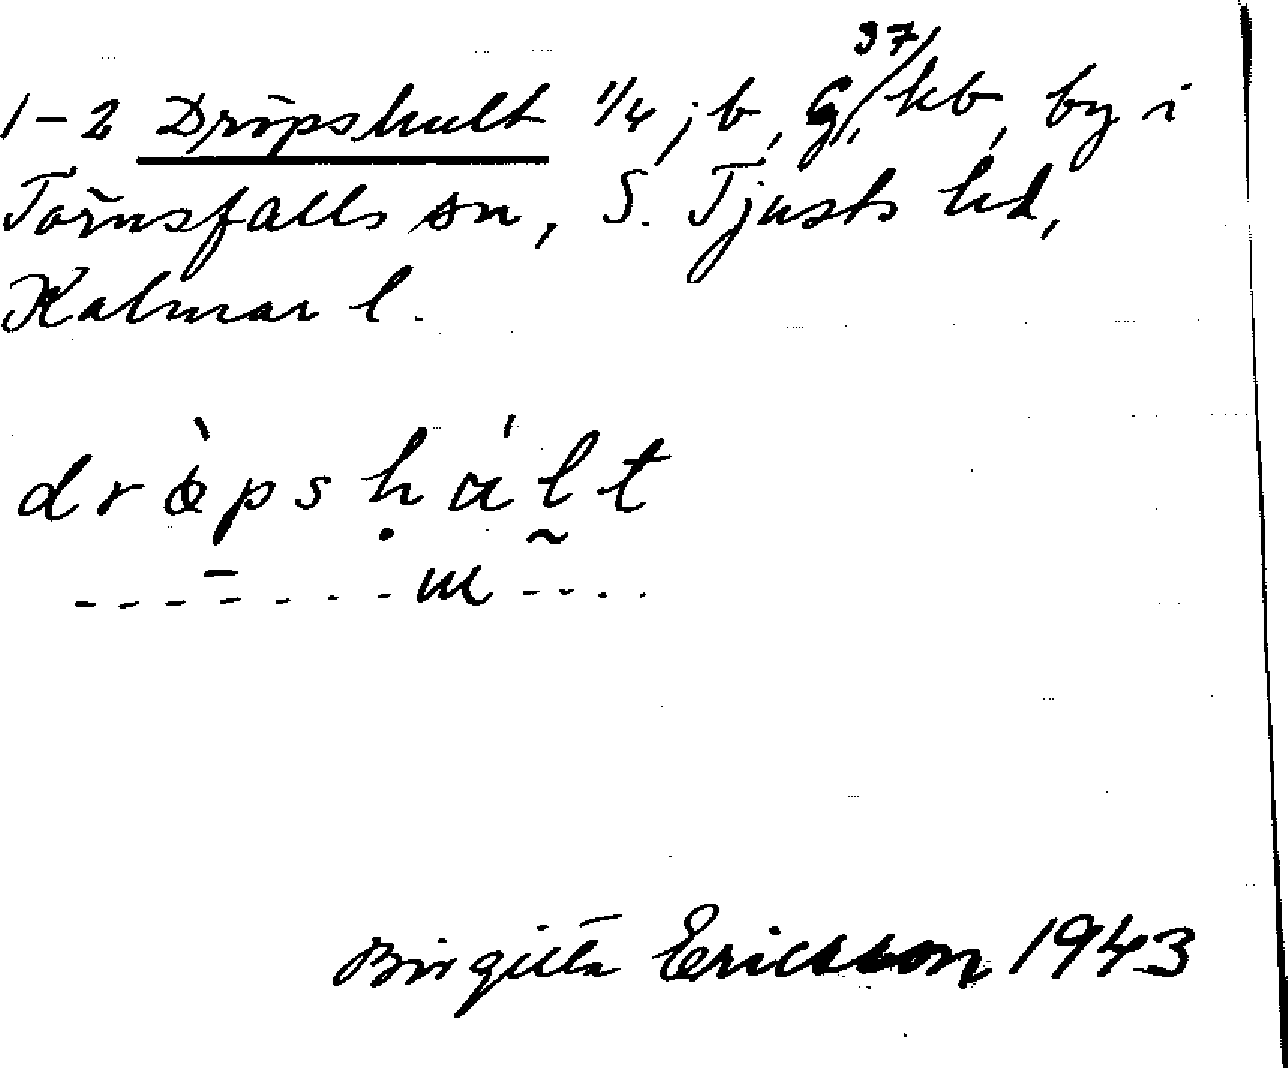 1-2 Dröpshult 1/4 jb, G 37/kb, by i
Törnsfalls sn, S. Tjusts hd,
Kalmar l.
Birgitta Ericsson 1943